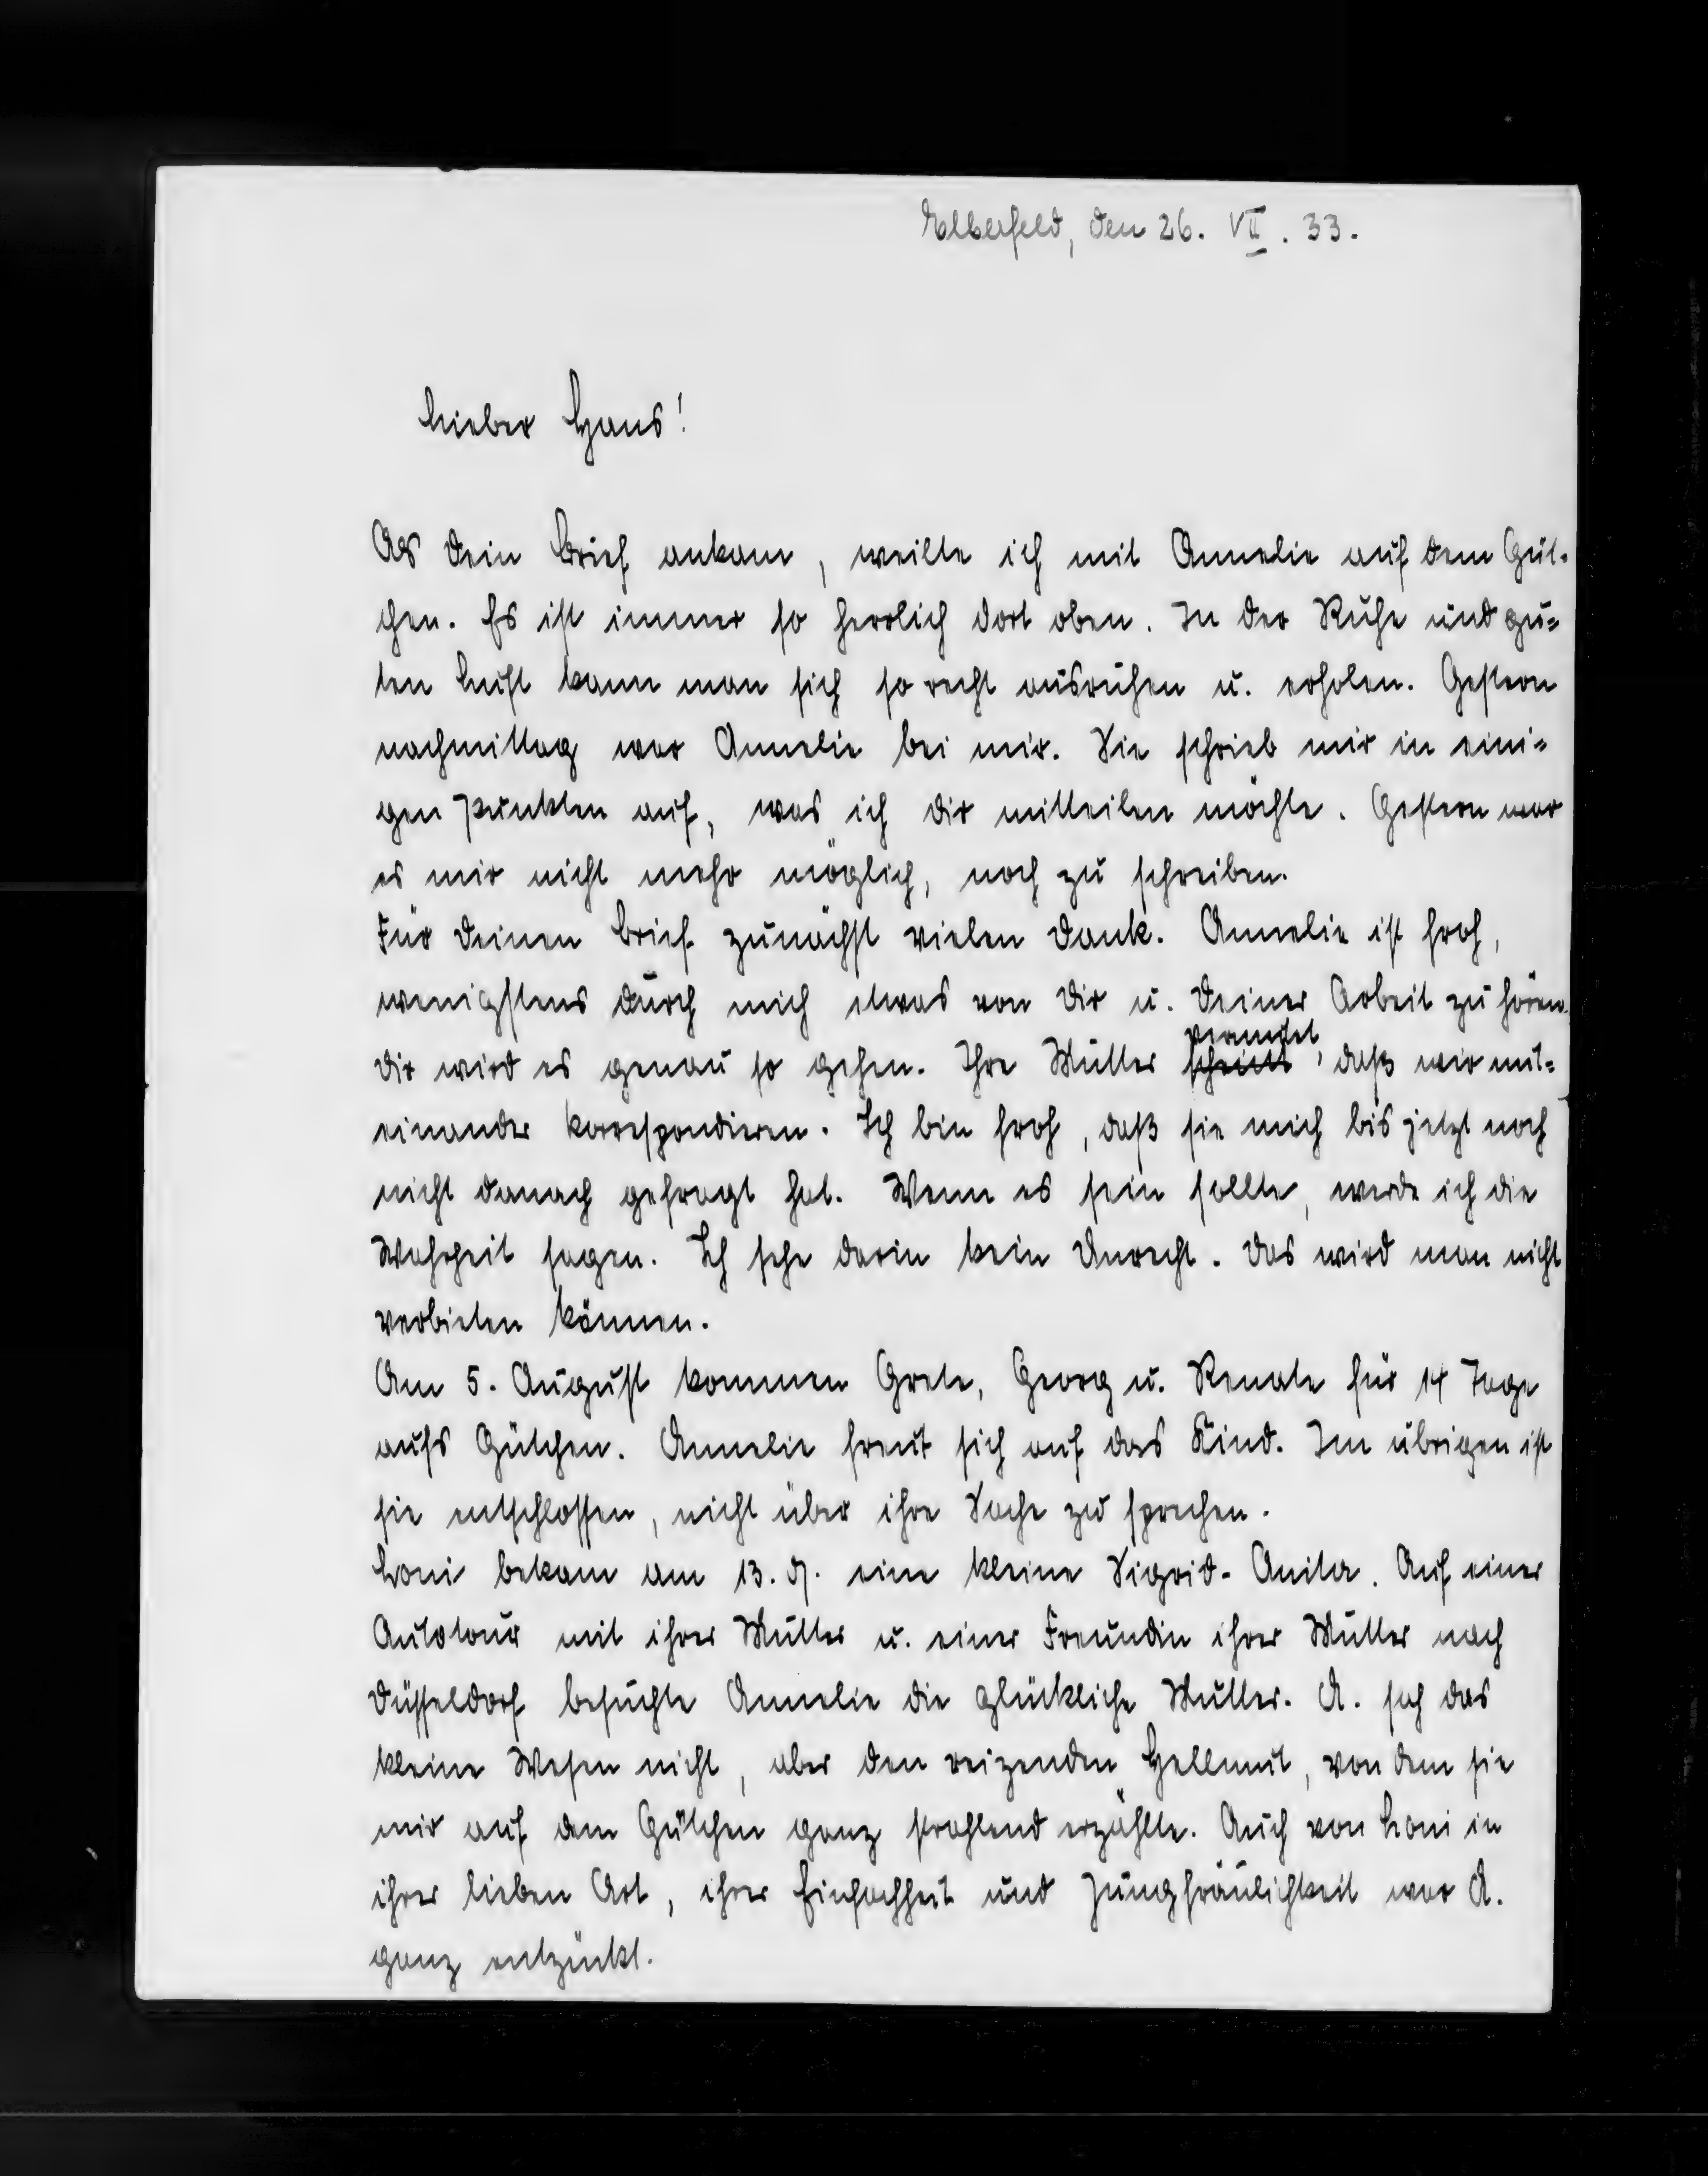 Elberfeld, den 26. VII. 33.
Lieber Hans!
Als Dein Brief ankam, weilte ich mit Annelie auf dem Güt-
chen. Es ist immer so herrlich dort oben. In der Ruhe und gu-
ten Luft kann man sich so recht ausruhen u. erholen. Gestern
nachmittag war Annelie bei mir. Sie schrieb mir in eini-
gen Punkten auf, was ich Dir mitteilen möchte. Gestern war
es mir nicht mehr möglich, noch zu schreiben.
Für Deinen Brief zunächst vielen Dank. Annelie ist froh,
wenigstens durch mich etwas von Dir u. Deiner Arbeit zu hören.
Dir wird es genau so gehen. Ihre Mutter vermutet, daß wir mit-
einander korrespondieren. Ich bin froh, daß sie mich bis jetzt noch
nicht danach gefragt hat. Wenn es sein sollte, werde ich die
Wahrheit sagen. Ich sehe darin kein Unrecht. Das wird man nicht
verbieten können.
Am 5. August kommen Grete, Georg u. Renate für 14 Tage
aufs Gütchen. Annelie freut sich auf das Kind. Im übrigen ist
sie entschlossen, nicht über ihre Sache zu sprechen.
Loni bekam am 13. 7. eine kleine Sigrid-Anita. Auf einer
Autotour mit ihrer Mutter u. einer Freundin ihrer Mutter nach
Düsseldorf besuchte Annelie die glückliche Mutter. A. sah das
kleine Wesen nicht, aber den reizenden Hellmut, von dem sie
mir auf dem Gütchen ganz strahlend erzählte. Auch von Loni in
ihrer lieben Art, ihrer Einfachheit und Jungfräulichkeit war A.
ganz entzückt.